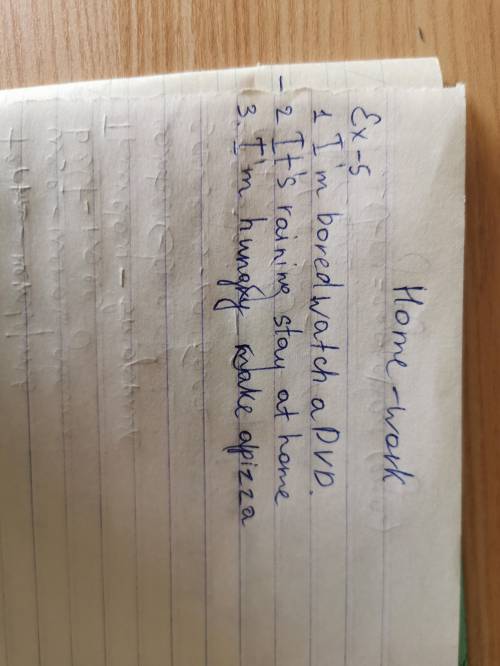 Home-work
Ex-5
1 I'm bored watch a DVD.
- 2 It's raining stay at home
3. I'm hungry make a pizza